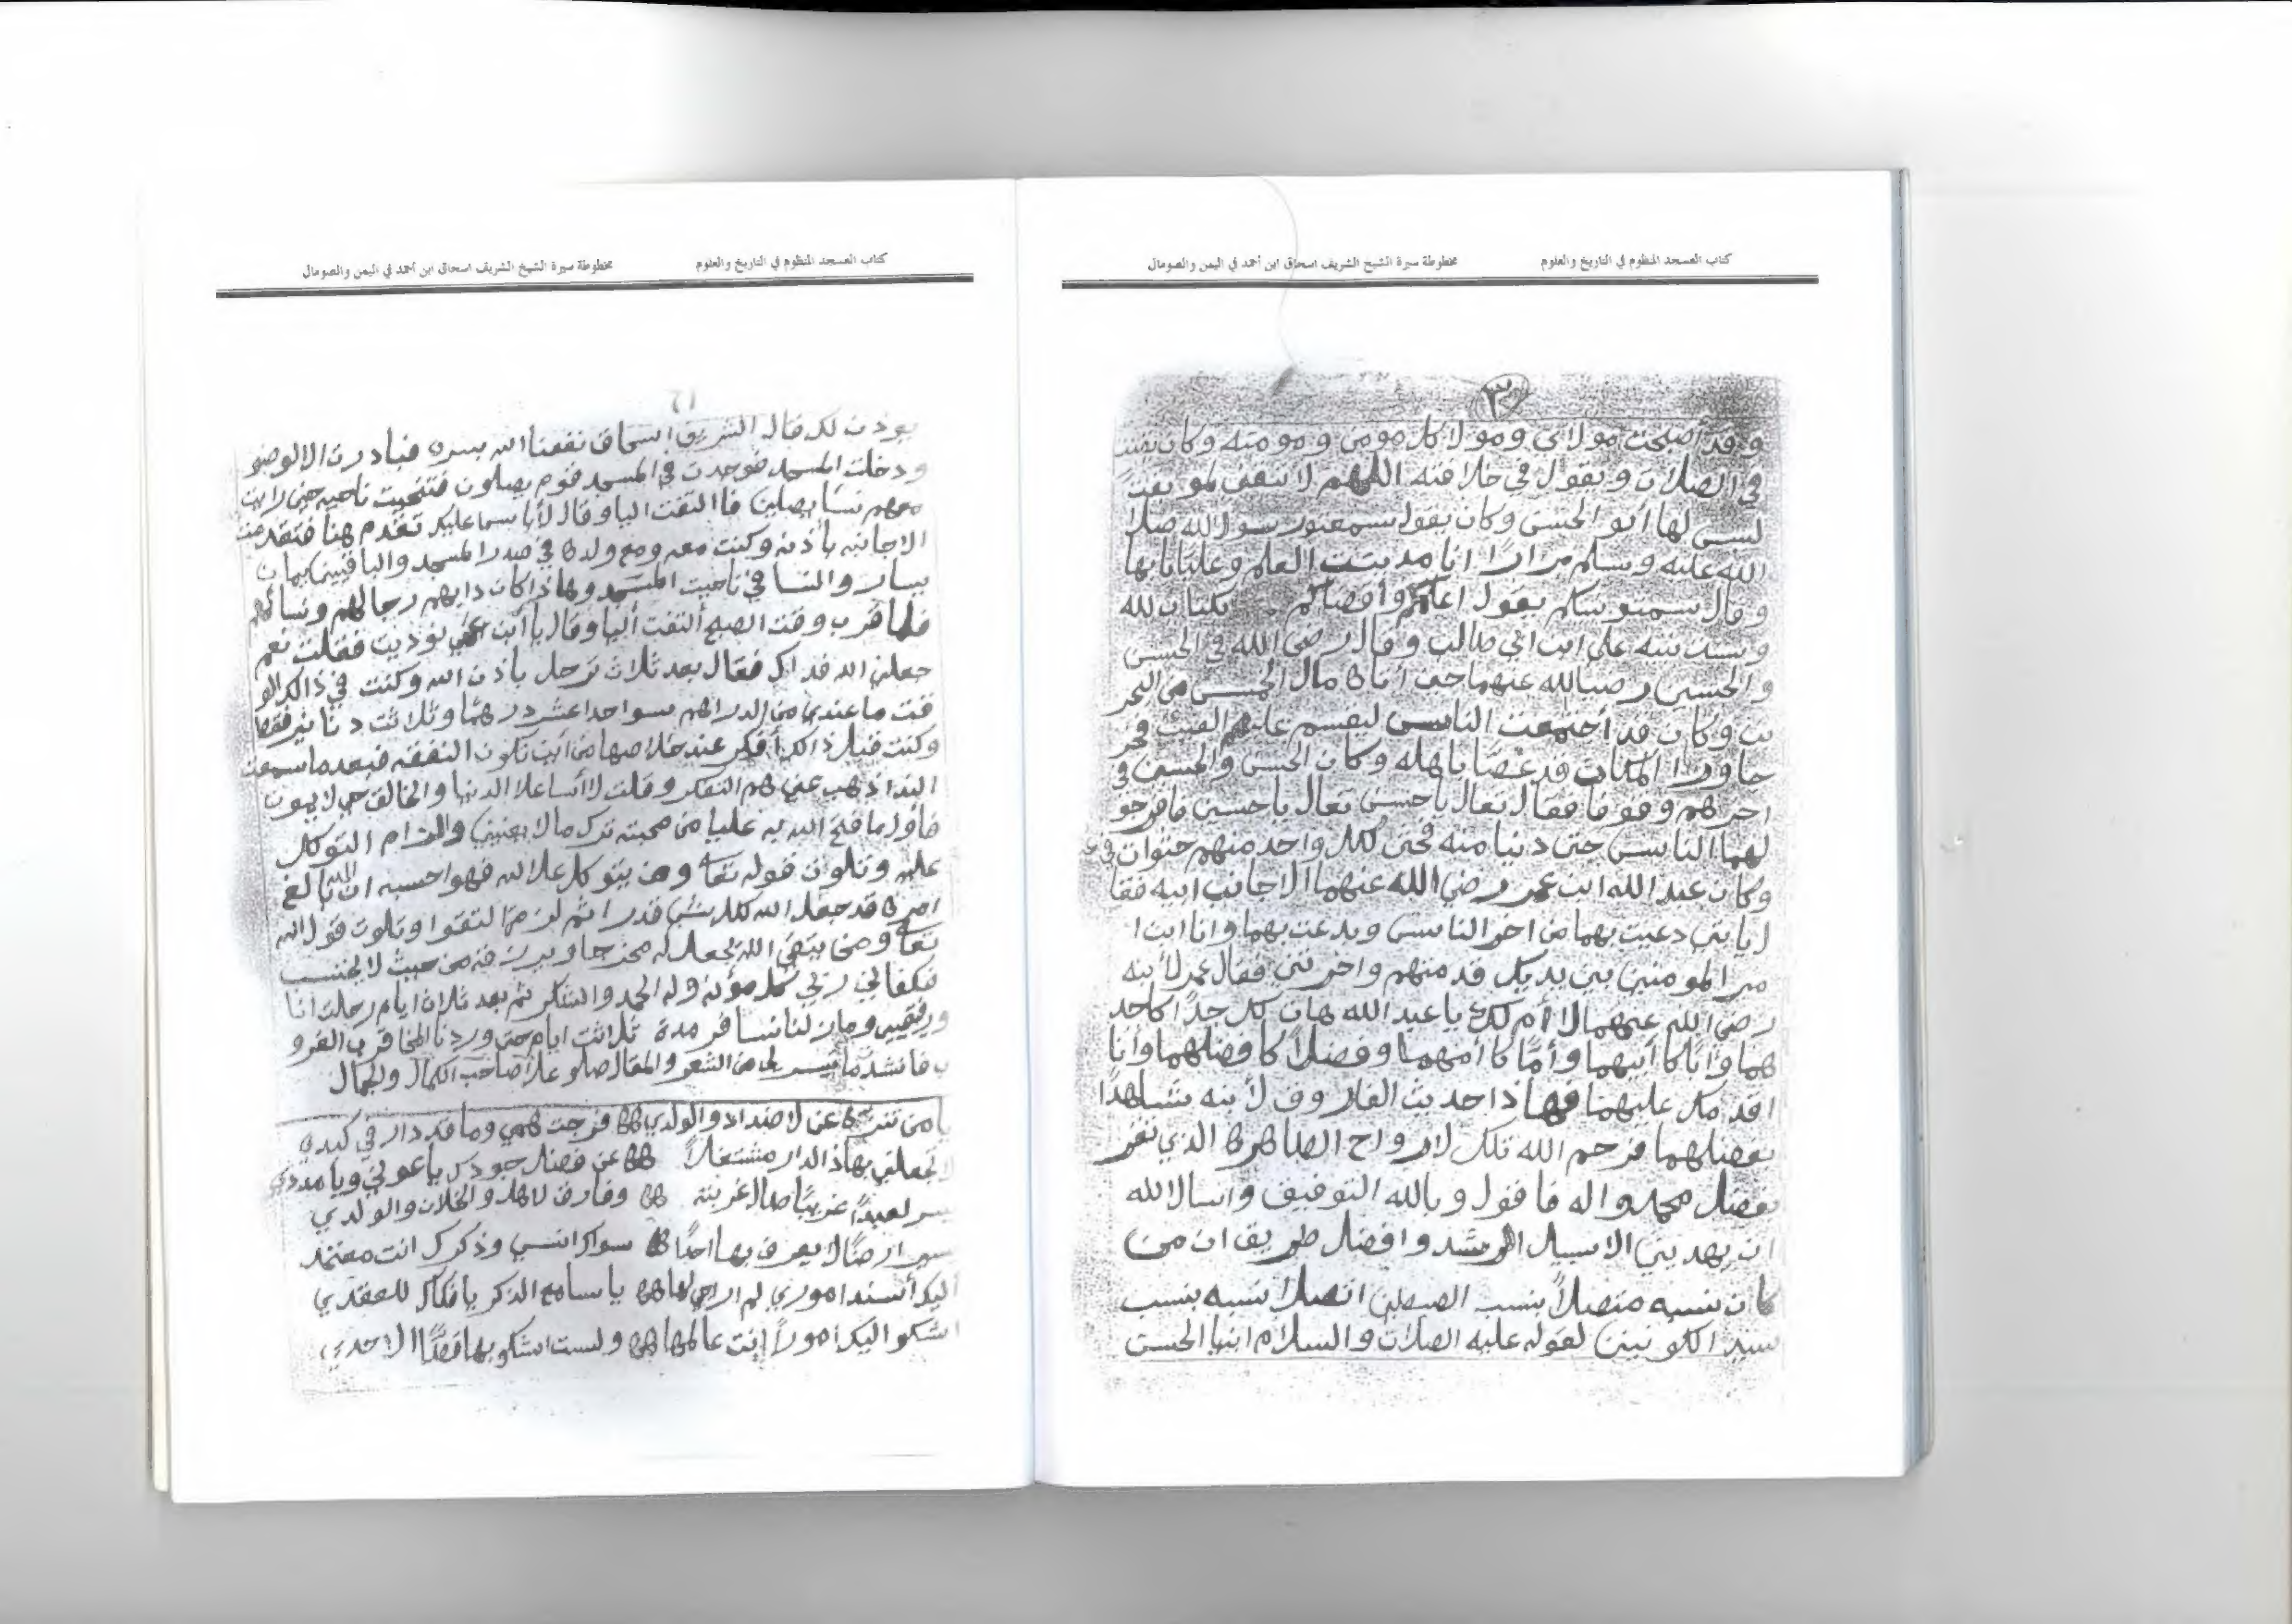 كتاب العسجد المنظوم في التاريخ والعلوم مخطوطة سيرة الشيخ الشريف اسحاق ابن أحمد في اليمن والصومال
٣
وقد أصبحت مولاي ومولا كل مومن ومومنه وكان
في الصلات ويقول في خلافته اللهم لا
لها أبو الحسن وكان يقول رسول الله صلا
الله عليه وسلم مرارًا انا مدينت العلم وعليًا بابها
وقال يقول اعلمكم وأقضاكم بكتاب لله
وسنت نبيه علي ابن ابي طالب وقال رضي الله في الحسن
والحسين رضيالله عنهما حين أتاه مال الخمس من البحر
ين وكان قد أجتمعت الناس ليقسم عليهم
المكان قد باهله وكان الحسن والحسين في
اخرهم وقوفا فقال تعال ياحسن تعال ياحسين فافرجو
لهما الناس حتى دنيا منه فحتى لكل واحد منهم حثوات
وكان عبد الله ابن عمر رضي الله عنهما الا جانب ابيه فقا
ل يابتي دعيت بهما من اخر الناس وبدعت بهما وانا ابن ا
مير المومنين بين يديك قد منهم واخرتني فقال عمر لأبنه
رضي الله عنهما لا أم لك ياعبد الله هات لك جدًا كاجد
هما وأبًا كا أبيهما وأمًا كا أمهما وفضلاً كا فضلهما وأنا
اقدمك عليهما فهاذا حديث الفاروق لأبنه شاهدًا
بفضلهما فرحم الله تلك لارواح الطاهره الذي
بفضل محمد واله فاقول وبالله التوفيق واسالالله
ان يهديني الا سبيل الرشد وافضل طريق ان من
كان نسبه متصلاً بنسب اتصلا نسبه بنسب
سيد الكونين لقوله عليه الصلات والسلام ابنيا الحسن
كتاب العسجد المنظوم في التاريخ والعلوم مخطوطة سيرة الشيخ الشريف اسحاق ابن أحمد في اليمن والصومال
يوذن لك قال الشريف اسحاق نفعنا الله بسره فبادرت الا الوضو
ودخلت المسجد فوجدت في المسجد قوم يصلون فتنحيت ناحيه حين رايت
معهم نسًا يصلين فاا التفت اليا وقال لأبأسا عليك تقدم هنا فتقدمت
الاجانبه بأذنه وكنت معه ومع ولده في صدر المسجد والباقيين
يسار والنسا في ناحيت المسجد وهاذا كان دايهم رجالهم ونسائهم
فلما قرب وقت الصبح ألتفت أليا وقال ياأبن نوديت فقلت نعم
جعلني الله فداك فقال بعد ثلاث ترحل بأذن الله وكنت في ذالك الو
قت ما عندي من الدراهم سوا احداعشر درهمًا وثلاثت دنانير فقط
وكنت قبل ذالك أفكر عند خلاصها من أين تكون النفقه فبعد ما سمعت
الندا ذهب عني هم التفكر وقلت لاأسا علا الدنيا والخالق حي لا يموت
فأول ما فتح الله به عليا من محبته ترك مالا يعنيني والتزام التوكل
عليه وتلوت قوله تعا ومن يتوكل علا لله فهوا حسبه ان الله بالغ
امره قد جعل الله لكل شي قدرا ثم لزمة التقوا وتلوت قول الله
تعا ومن يتقي الله يجعل له مخرجا ويرزقه من حيث لا يحتسب
فكفاني ربي كل مؤنه وله الحمد والشكر ثم بعد ثلاث ايام رحلت انا
ورفقيي وما زلنا نسافر مدة ثلاثت ايام حتى وردنا المخا قرب الغرو
ب فانشد ما تيسر لي من الشعر والمقال صلو علا صاحب الكمال ولجمال
يامن تنزه عن لاضداد والولدي فرجت همي وما قد دار في كبدي
لا تجعلني بهاذ الدار مشتغلاً عن فضل جودك ياعوني ويا مددي
لعبدًا غريبًا طال غربته وفارق لاهل والخلان والولدي
ارضًا لا يعرف بها احدًا سواك انسي وذكرك انت معتمد
اليك أسند اموري لم ياسامع الذكر يافكاك للعقدي
اشكو اليك امورًا إنت عالمها ولست اشكو بها